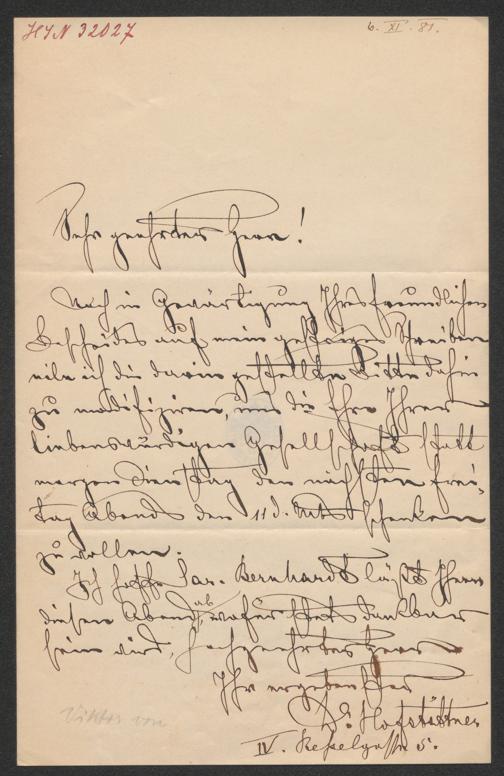 HIN 32027
6. XI. 81.
Sehr geehrter Herr!
Noch in Gewärtigung Ihres freundlichen
Bescheides auf mein gestriges Schreiben
eile ich die darin gestellte Bitte dahin
zu modifiziren, mir die Ehre Ihrer
liebenswürdigen Gesellschaft statt
morgen Dienstag den nächsten Frei-
tag Abends den 11 d. Mts schenken
zu wollen.
Ich hoffe Sar. Bernhardt läßt Ihnen
diesen Abend, wofür stets dankbar
ab
sein wird, hochgeehrter Herr
Ihr ergebenster
Dr. Hofstättner
IV. Resselgasse 5.
Viktor von